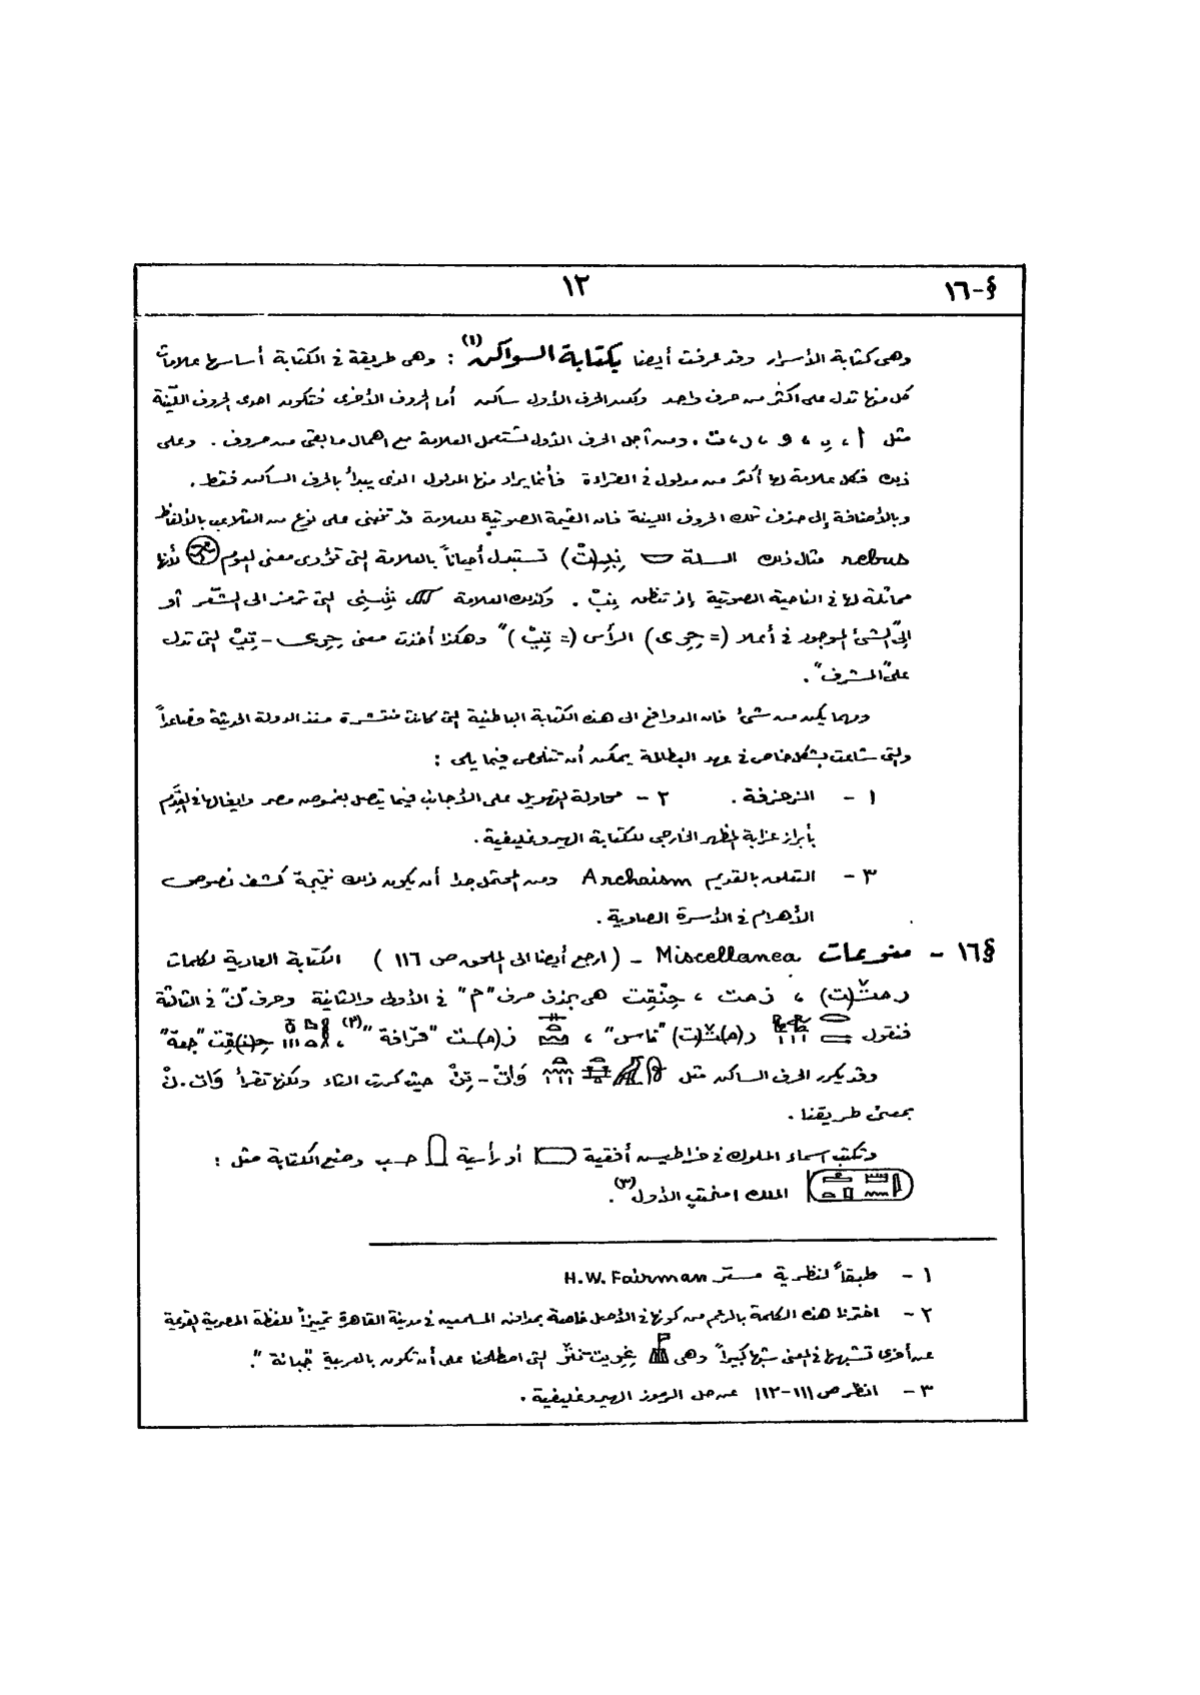 §-١٦
١٢
وهى كتابة الأسرار وقد عرفت أيضا بكتابة السواكن(١) : وهى طريقة فى الكتابة أساسها علامات
كل منها تدل على أكثر من حرف واحد ويكون الحرف الأول ساكن أما الحروف الأخرى فتكون احدى الحروف اللينة
مثل أ ، ى ، و ، ر ، ت . ومن أجل الحرف الأول تستعمل العلامة مع اهمال ما بقى من حروف . وعلى
ذلك فكل علامة لها أكثر من مدلول فى القراءة فأنما يراد منها المدلول الذى يبدأ بالحرف الساكن فقط .
وبالأضافة إلى حذف تلك الحروف اللينة فان القيمة الصوتية للعلامة قد تنبنى على نوع من التلاعب بالألفاظ
rebus مثال ذلك السلة تستبدل أحياناً بالعلامة التى تؤدى معنى اليوم لأنها
مماثلة لها فى الناحية الصوتية إذ تنطق نِبْ . وكذلك العلامة التى ترمز الى الشَّعر أو
إلى "الشئ الموجود فى أعلا (= حِرِى) الرأس (= تِبْ)" وهكذا أخذت معنى حِرِى - تِبْ التى تدل
على "المشرف" .
ومهما يكن من شئ فان الدوافع الى هذه الكتابة الباطنية التى كانت منتشرة منذ الدولة الحديثة فصاعداً
والتى شاعت بشكل خاص فى عهد البطالمة يمكن أن تتلخص فيما يلى :
١ - الزخرفة . ٢ - محاولة التهويل على الأجانب فيما يتصل بغموض مصر وايغالها فى القِدَم
بأبراز غرابة المظهر الخارجى للكتابة الهيروغليفية .
٣ - التعلق بالقديم Archaism ومن المحتمل جدا أن يكون ذلك نتيجة كشف نصوص
الأهرام فى الأسرة الصاوية .
§١٦ - متنوعات Miscellanea - ( ارجع أيضا الى الملحق ص ١١٦ ) الكتابة العادية لكلمات
رمث(ت) ، زمت ، حِنْقِت هى بحذف حرف "م" فى الأولى والثانية وحرف "ن" فى الثالثة
فنقول ر(م)ث(ت) "ناس" ، ز(م)ـت "قرّافة"(٢) ، حِ(نْ)قِت "جعة"
وقد يكرر الحرف الساكن مثل وَاتْ - تِنْ حيث كررت التاء ولكنها تقرأ وَات . نْ
بمعنى طريقنا .
وتكتب اسماء الملوك فى خراطيش أفقية أو رأسية حسب وضع الكتابة مثل :
الملك امنحتب الأول(٣) .
١ - طبقاً لنظرية مستر H.W. Fairman
٢ - اخترنا هذه الكلمة بالرغم من كونها فى الأصل خاصة بمدافن المسلمين فى مدينة القاهرة تمييزاً للفظة المصرية القديمة
عن أخرى تشبهها فى المعنى شبها كبيراً وهى التى اصطلحنا على أن تكون بالعربية "جبانة" .
٣ - انظر ص ١١١-١١٢ عن حل الرموز الهيروغليفية .